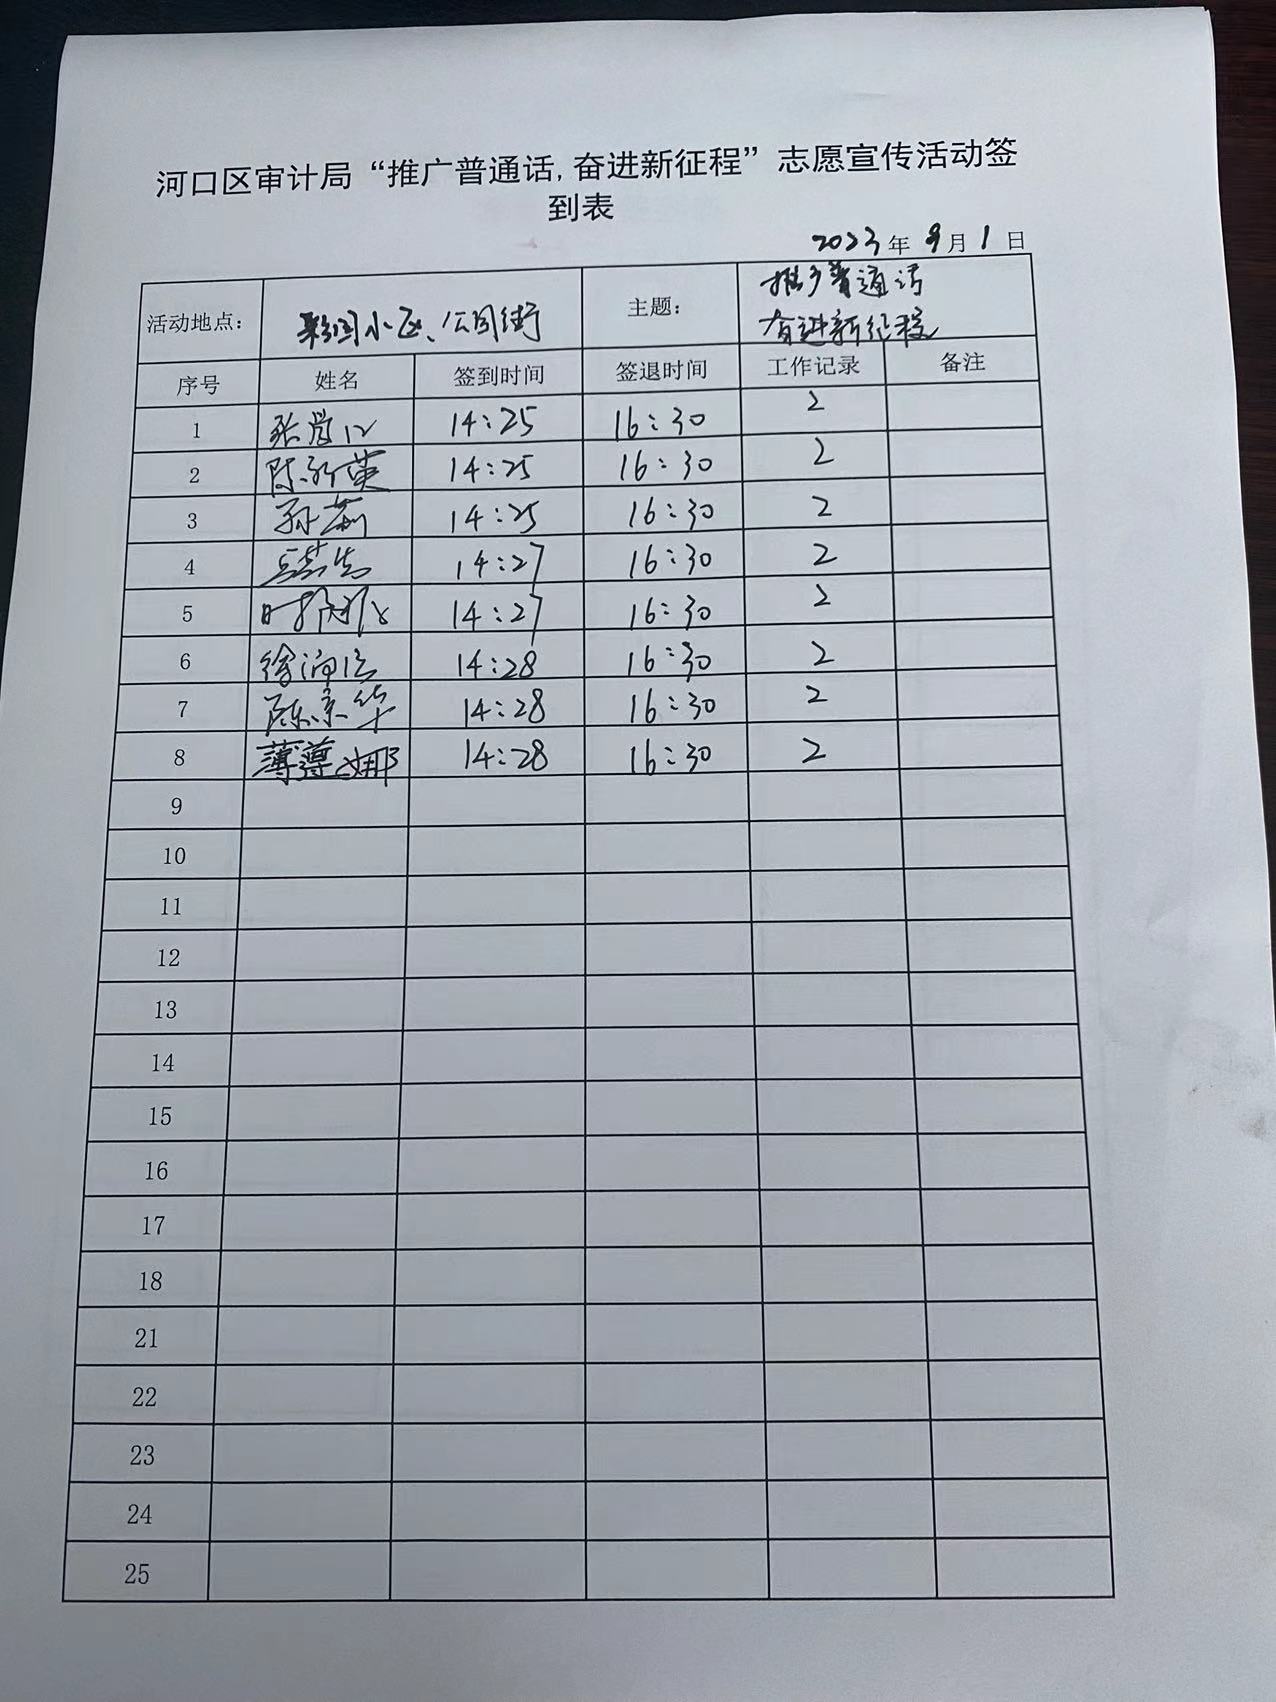 河口区审计局“推广普通话,奋进新征程”志愿宣传活动签
到表
2023年9月1日
活动地点: 小区、公园街 主题: 推广普通话
奋进新征程
序号 姓名 签到时间 签退时间 工作记录 备注
1 14:25 16:30 2
2 陈新英 14:25 16:30 2
3 孙莉 14:25 16:30 2
4 14:27 16:30 2
5 14:27 16:30 2
6 14:28 16:30 2
7 陈京华 14:28 16:30 2
8 娜 14:28 16:30 2
9
10
11
12
13
14
15
16
17
18
21
22
23
24
25